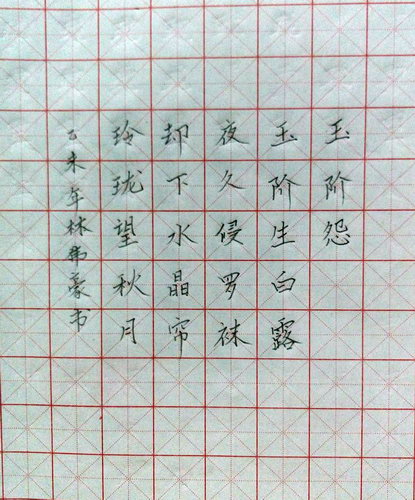 玉阶怨
玉阶生白露
夜久侵罗袜
却下水晶帘
玲珑望秋月
乙未年林伟豪书